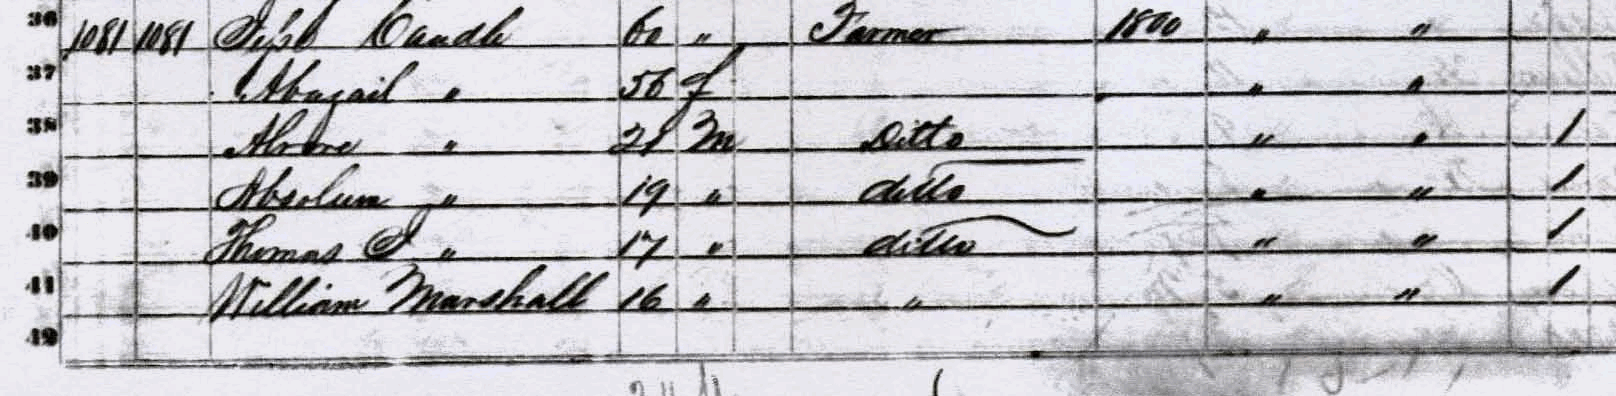 36 1081 1081 Caudle 60 " Farmer 1800 " "
37 Abagail " 56 f " "
38 " 21 M Ditto " " 1
39 Absolum " 19 " ditto " " 1
40 Thomas J " 17 " ditto " " 1
41 William Marshall 16 " " " " 1
42